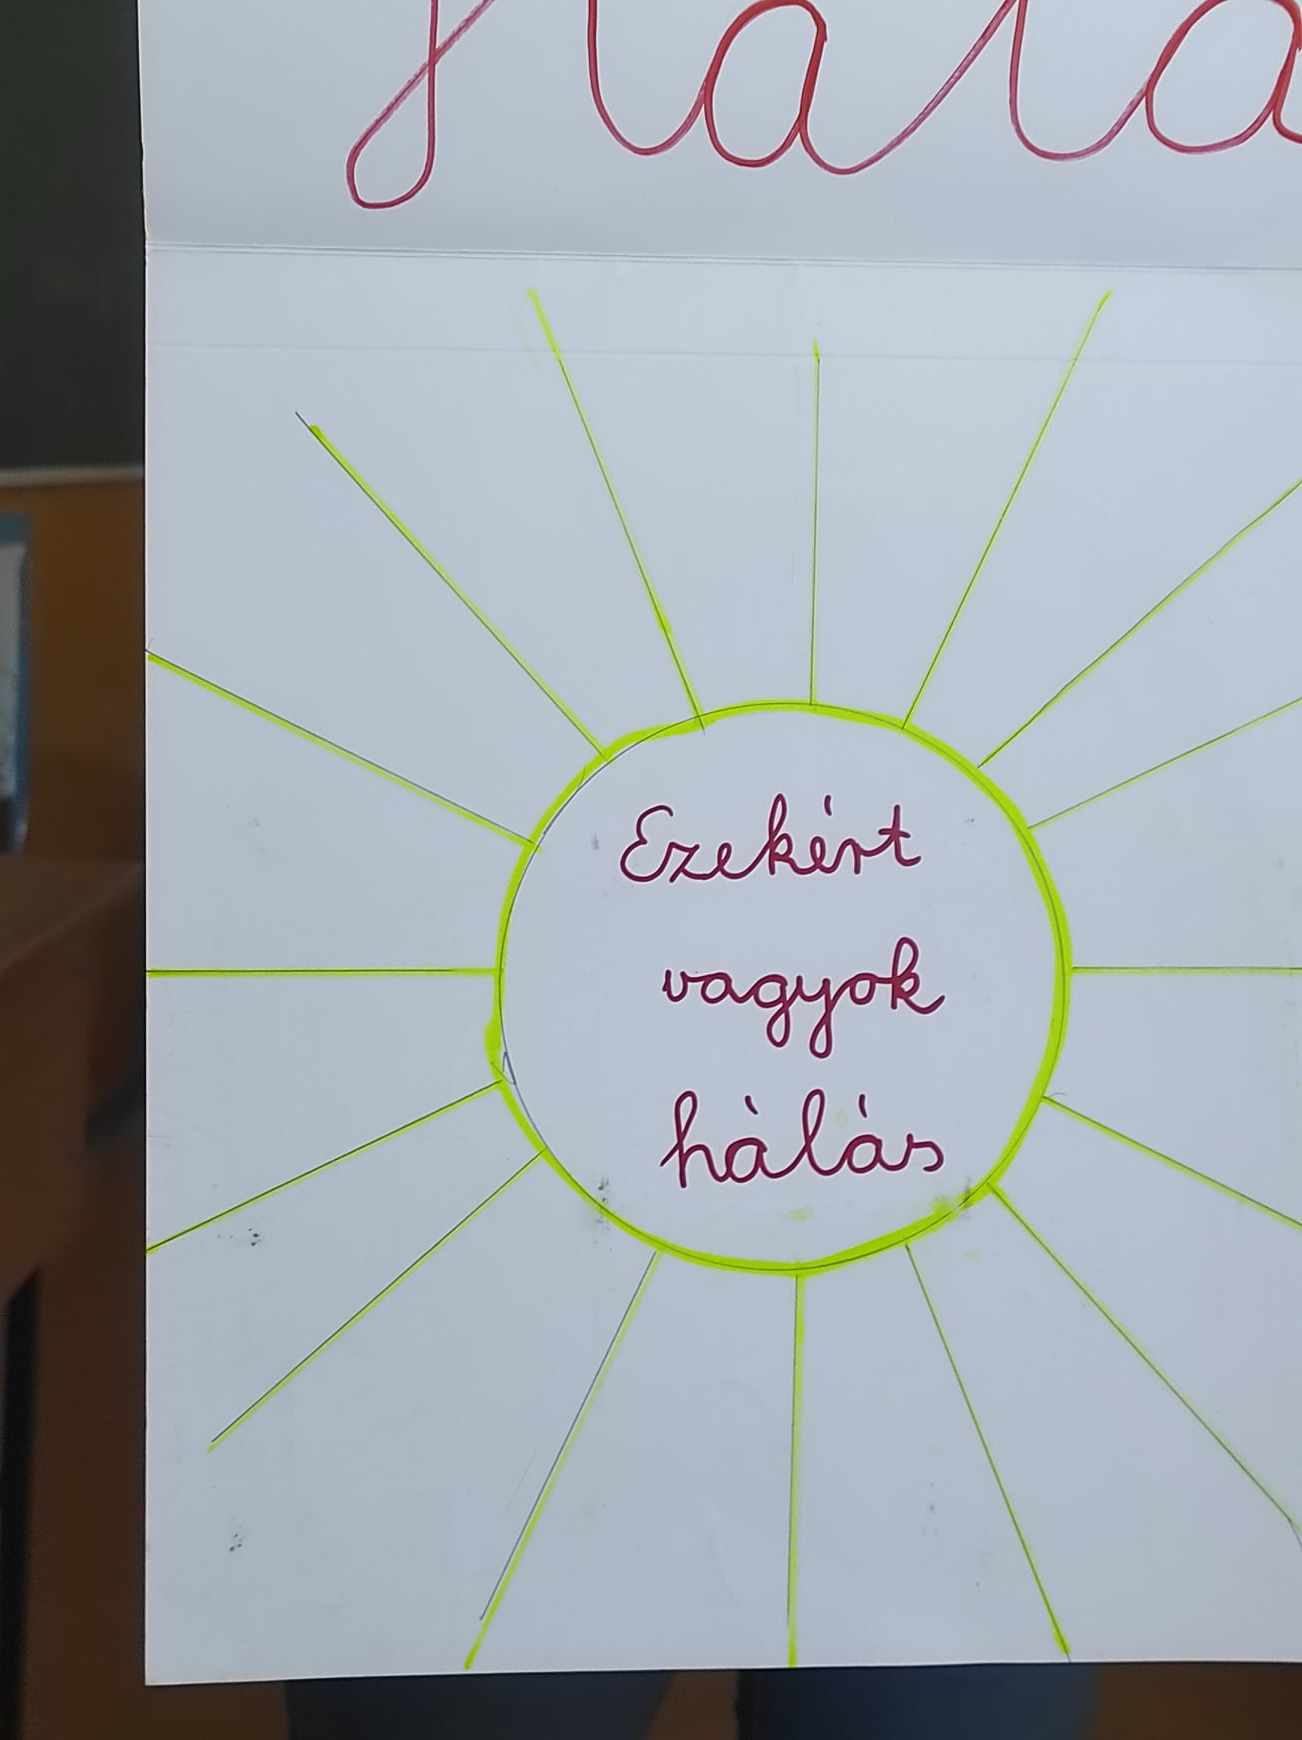 Ezekért
vagyok
hálás